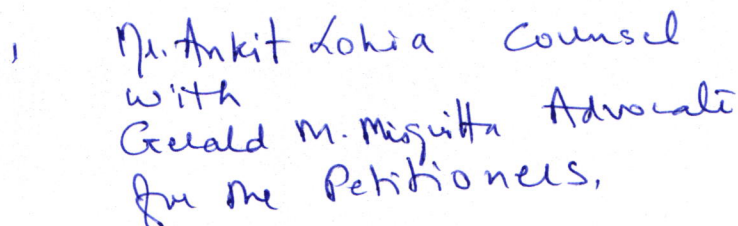 , Mr. Ankit Lohia Counsel
with
Gerald M. Misquitta Advocate
for the Petitioners.